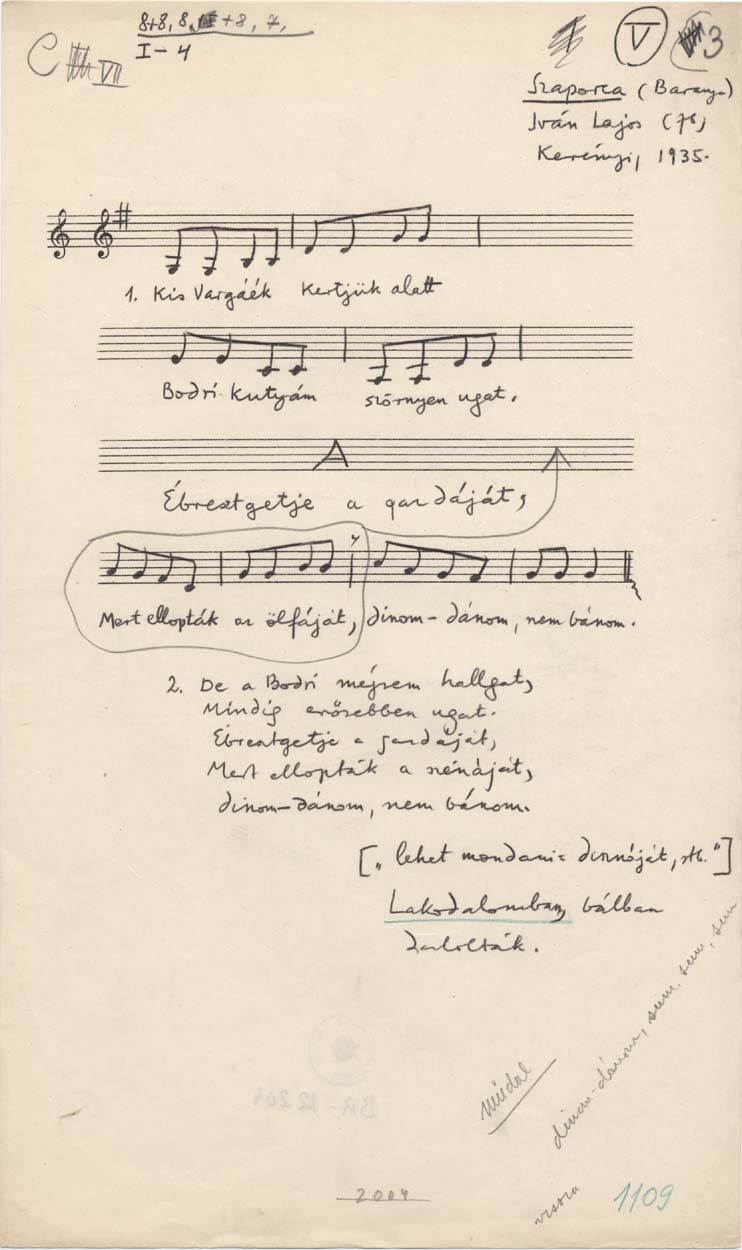 8+8, 8, +8, 7,
I-4
C VII
V
3
Szaporca (Baranya)
Iván Lajos (76)
Kerényi, 1935.
1. Kis Vargáék Kertjük alatt
Bodri kutyám szörnyen ugat.
A
Ébresztgetje a gazdáját,
Mert ellopták az ölfáját, dinom-dánom, nem bánom.
2. De a Bodri mégsem hallgat,
Mindig erősebben ugat.
Ébresztgetje a gazdáját,
Mert ellopták a szénáját,
dinom-dánom, nem bánom.
[„lehet mondani: disznóját, stb."]
Lakodalomban, bálban
dalolták.
műdal
dinom-dánom, szüm, szüm, szüm
vissza
BR-12204
2004
1109